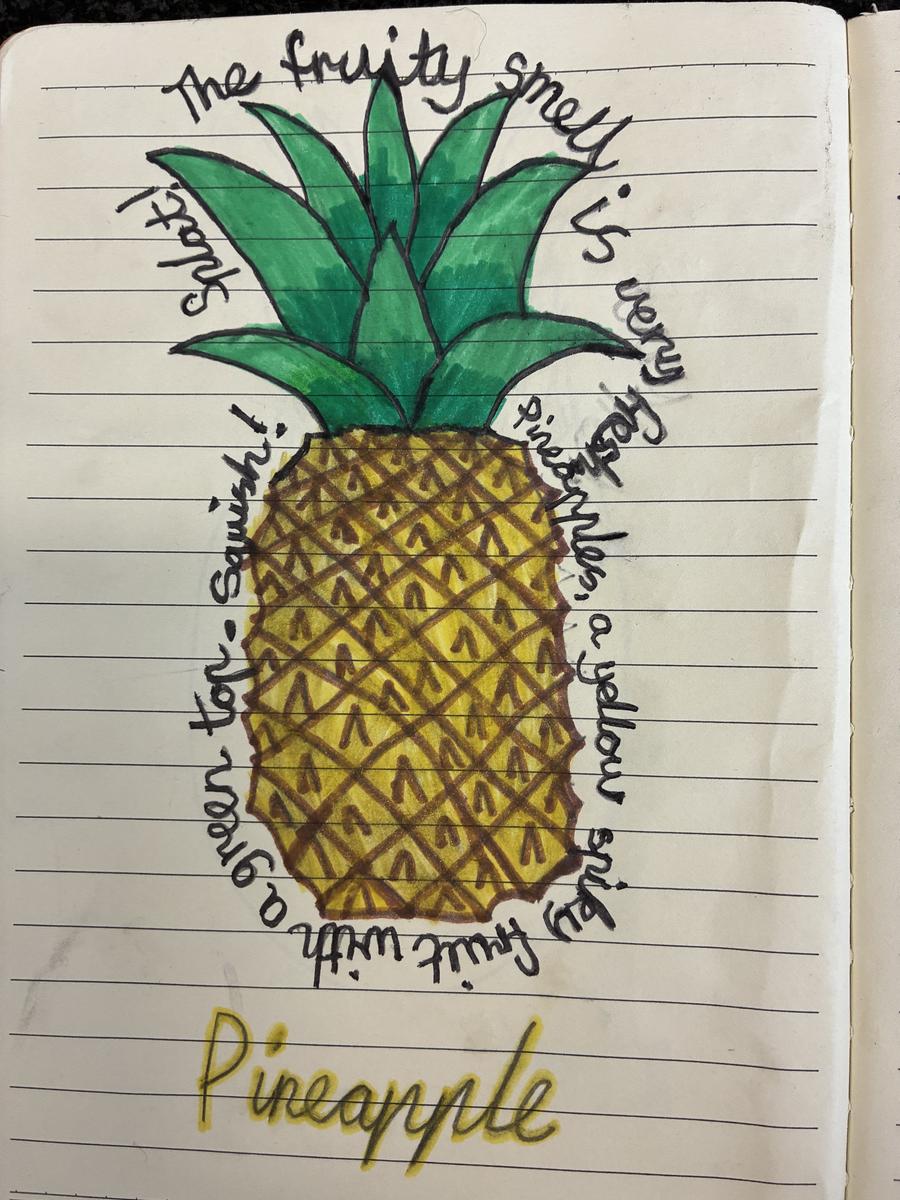 The fruity smell is very fresh
Pineapples, a yellow spiky fruit with a green top. Squish!
Splat!
Pineapple